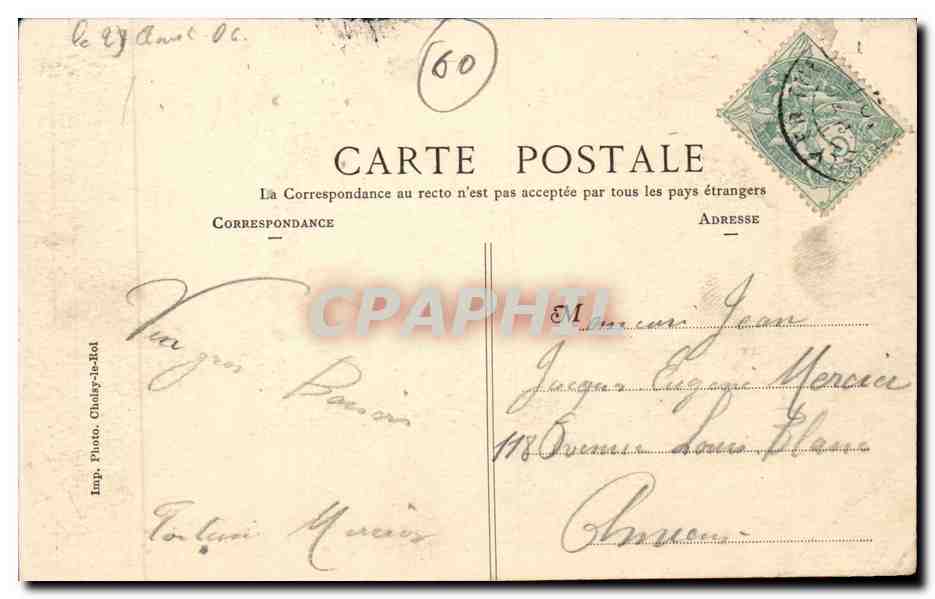 le 27 Aout 06
60
CARTE POSTALE
La Correspondance au recto n'est pas acceptée par tous les pays étrangers
CORRESPONDANCE
ADRESSE
CPAPHIL
gros Baisers
Mercier
Monsieur Jean
Jacques Eugène Mercier
118 Avenue Louis Blanc
Amiens
Imp. Photo. Choisy-le-Roi